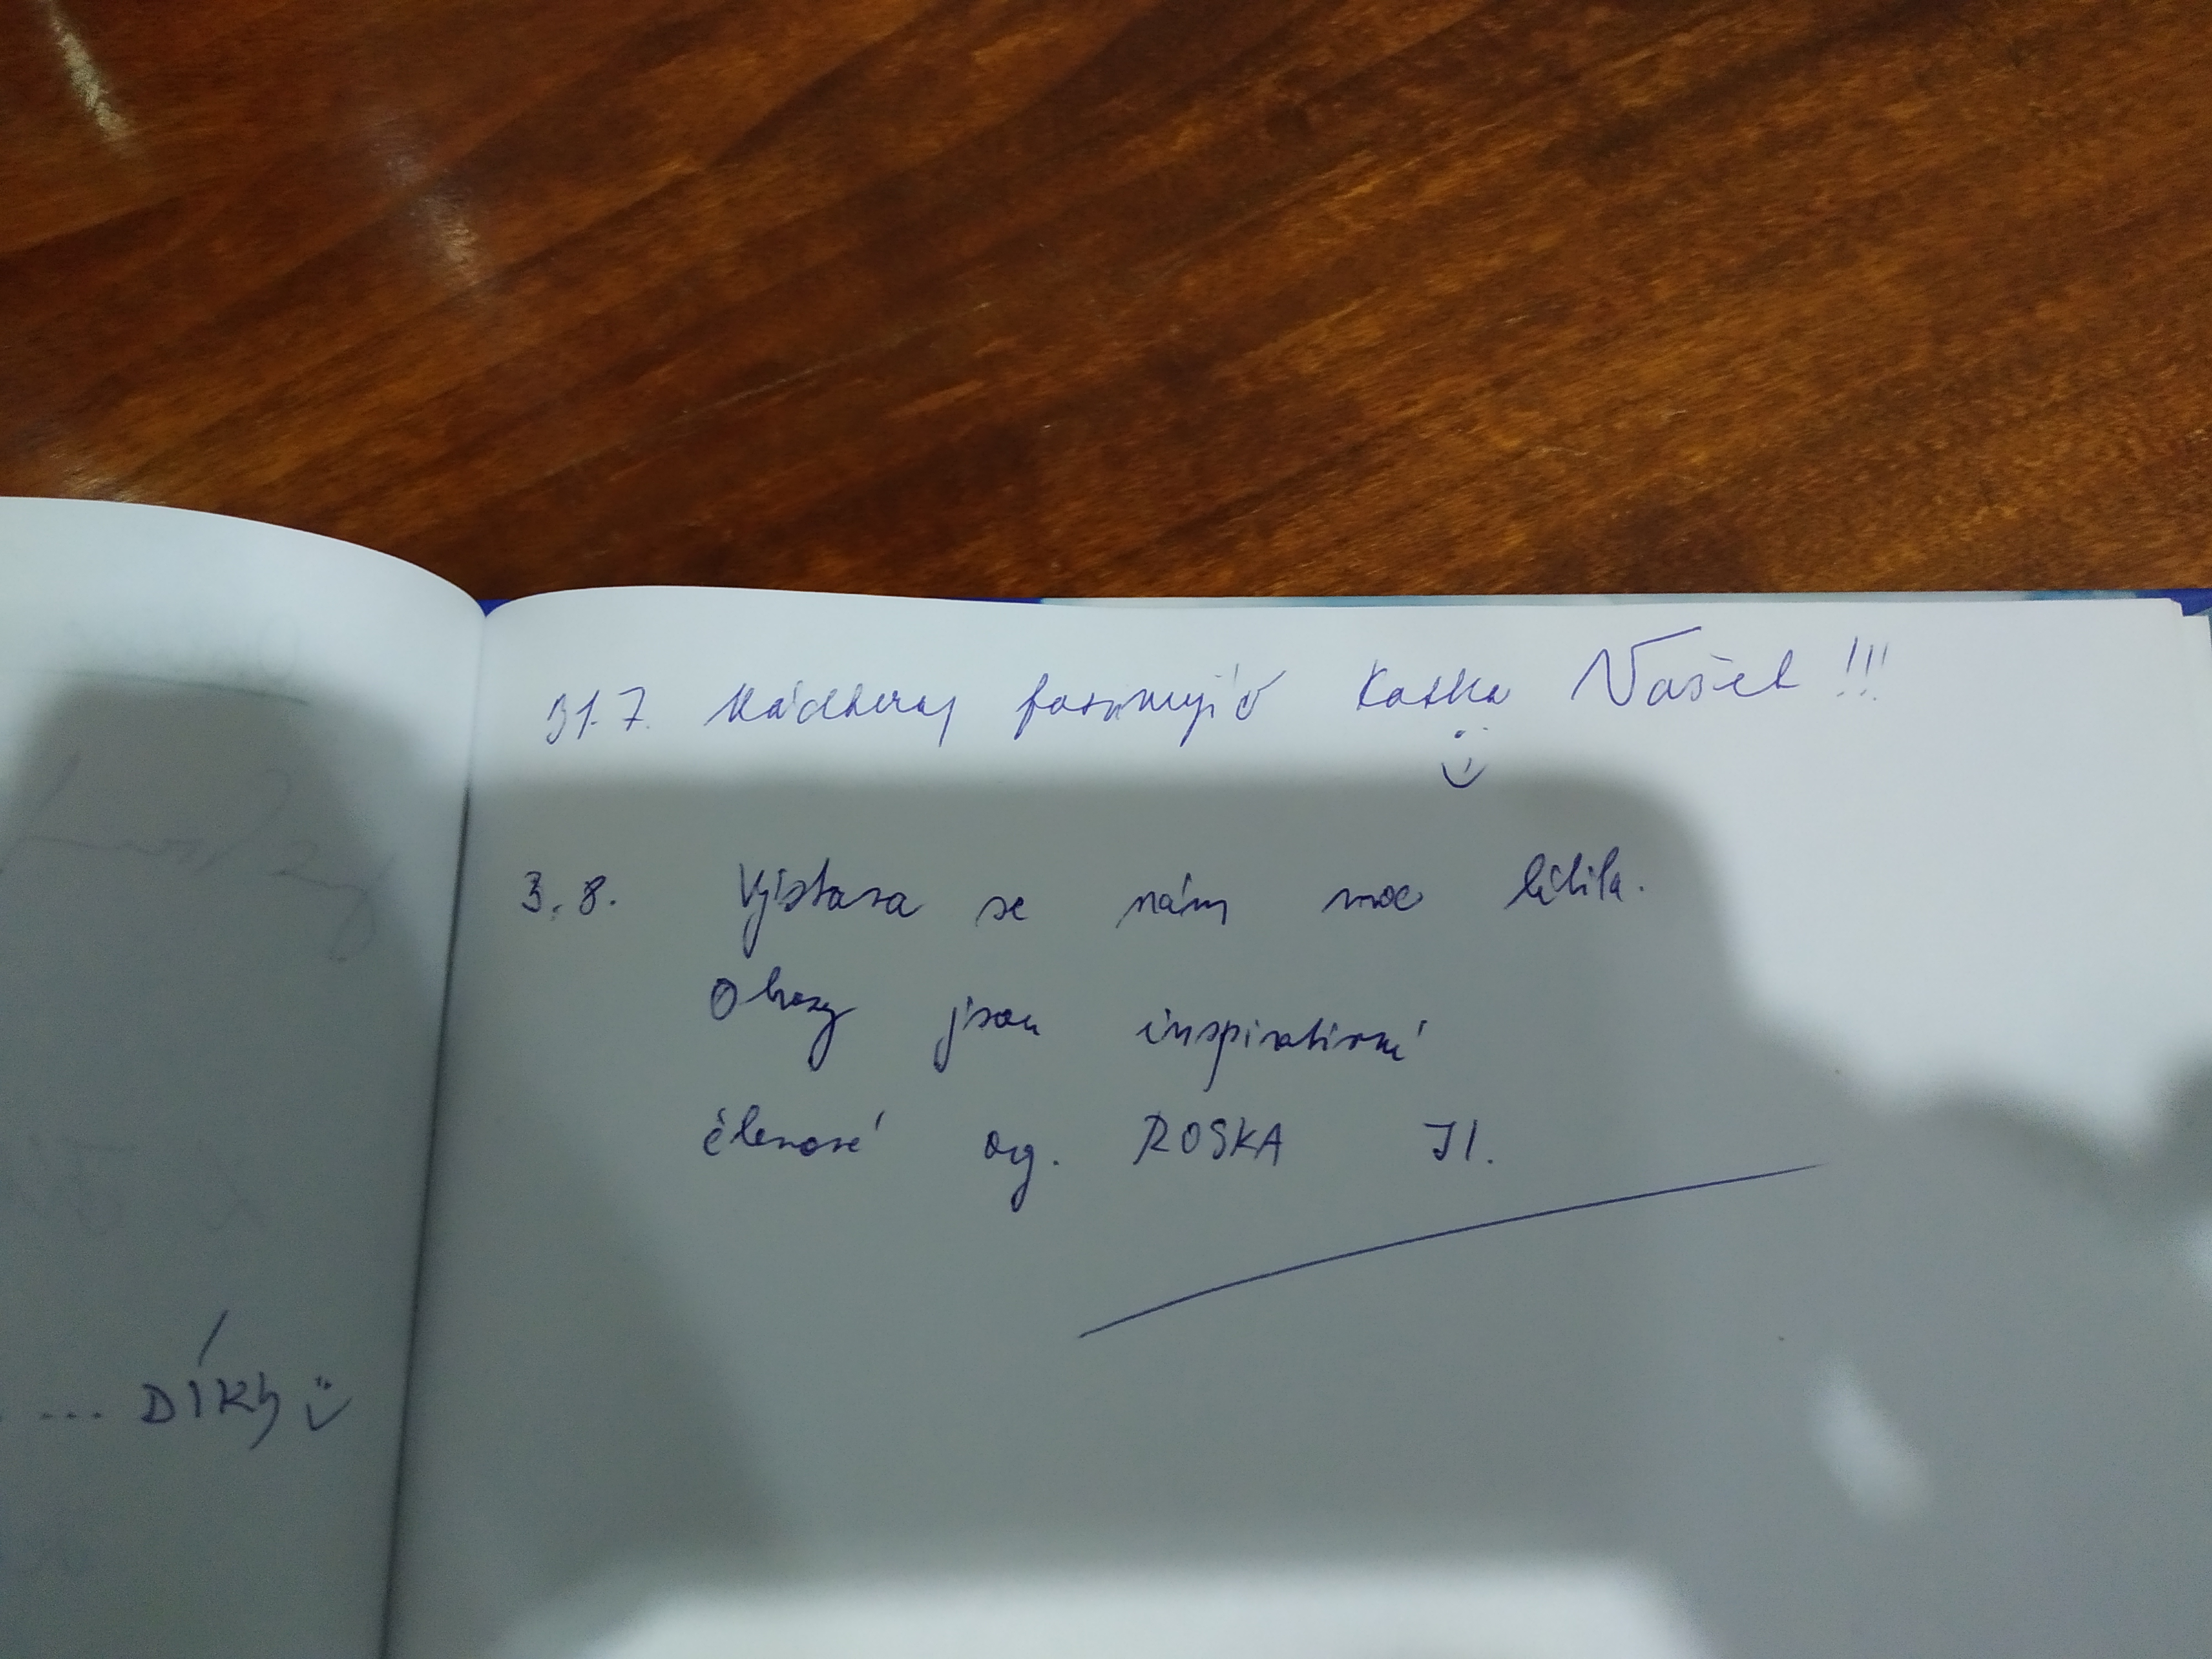 31.7. Nádherný fascinující Katka Vašek !!!
3.8. Výstava se nám moc líbila.
Obrazy jsou inspirativní
členové org. ROSKA JI.
... DÍKY